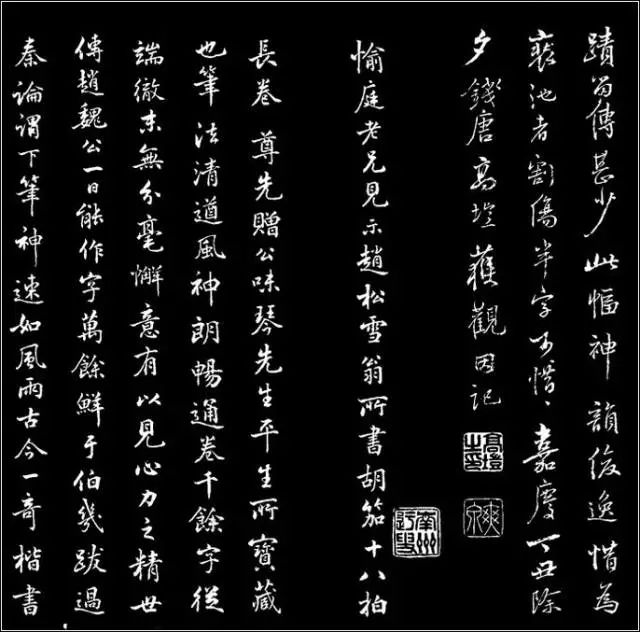 蹟留傳甚少此幅神韻俊逸惜為
裝池者割傷半字可惜〻嘉慶丁丑除
夕錢唐高塏獲觀因記
高塏之印
爽泉
愉庭老兄見示趙松雪翁所書胡笳十八拍
長卷 尊先贈公味琴先生平生所寶藏
也筆法清遒風神朗暢通卷千餘字從
端徹末無分毫懈意有以見心力之精世
傳趙魏公一日能作字萬餘鮮于伯幾跋過
秦論謂下筆神速如風雨古今一奇楷書